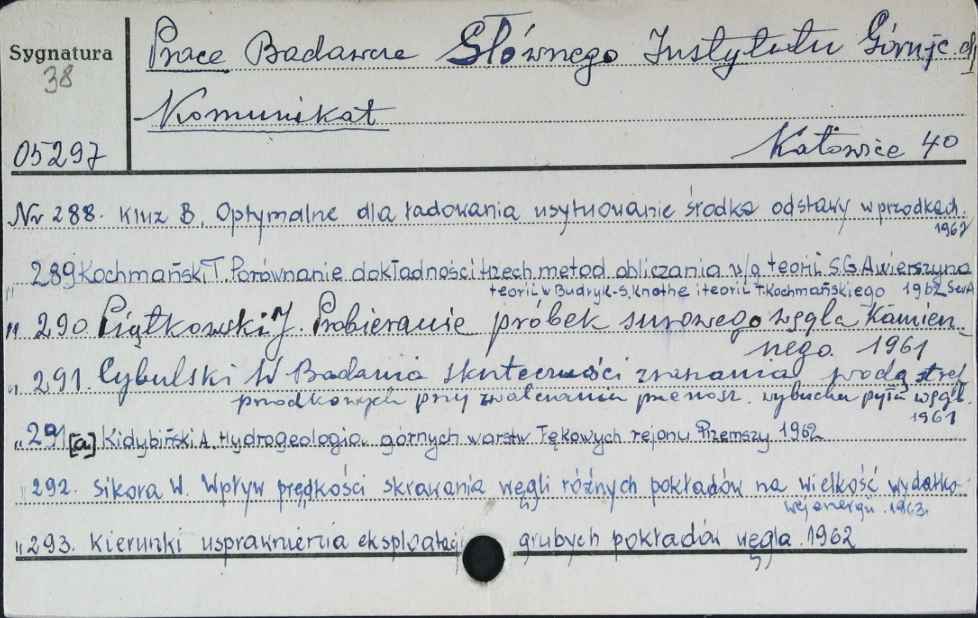 Sygnatura
38
Prace Badawcze Głównego Instytutu Górnic.
Komunikat
05297
Katowice 40
Nr 288. Kluz B. Optymalne dla ładowania usytuowanie środka odstawy w przodkach.
1962
" 289 Kochmański T. Porównanie dokładności trzech metod obliczania w/g teorii S.G. Awierszyna
teorii W Budryk-S. Knothe i teorii T. Kochmańskiego 1962 Ser A
" 290. Piątkowski J. Probieranie próbek surowego węgla kamien-
nego. 1961
" 291. Cybulski W Badania skuteczności zraszania wodą stref
przodkowych przy zwalczaniu przenosz. wybuchu pyłu węgl.
1961
" 291 [a] Kidybiński A. Hydrogeologia górnych warstw łękowych rejonu Przemszy 1962
" 292. Sikora W. Wpływ prędkości skrawania węgli różnych pokładów na wielkość wydatko-
wej energii. 1963.
" 293. Kierunki usprawnienia eksploatacji grubych pokładów węgla. 1962